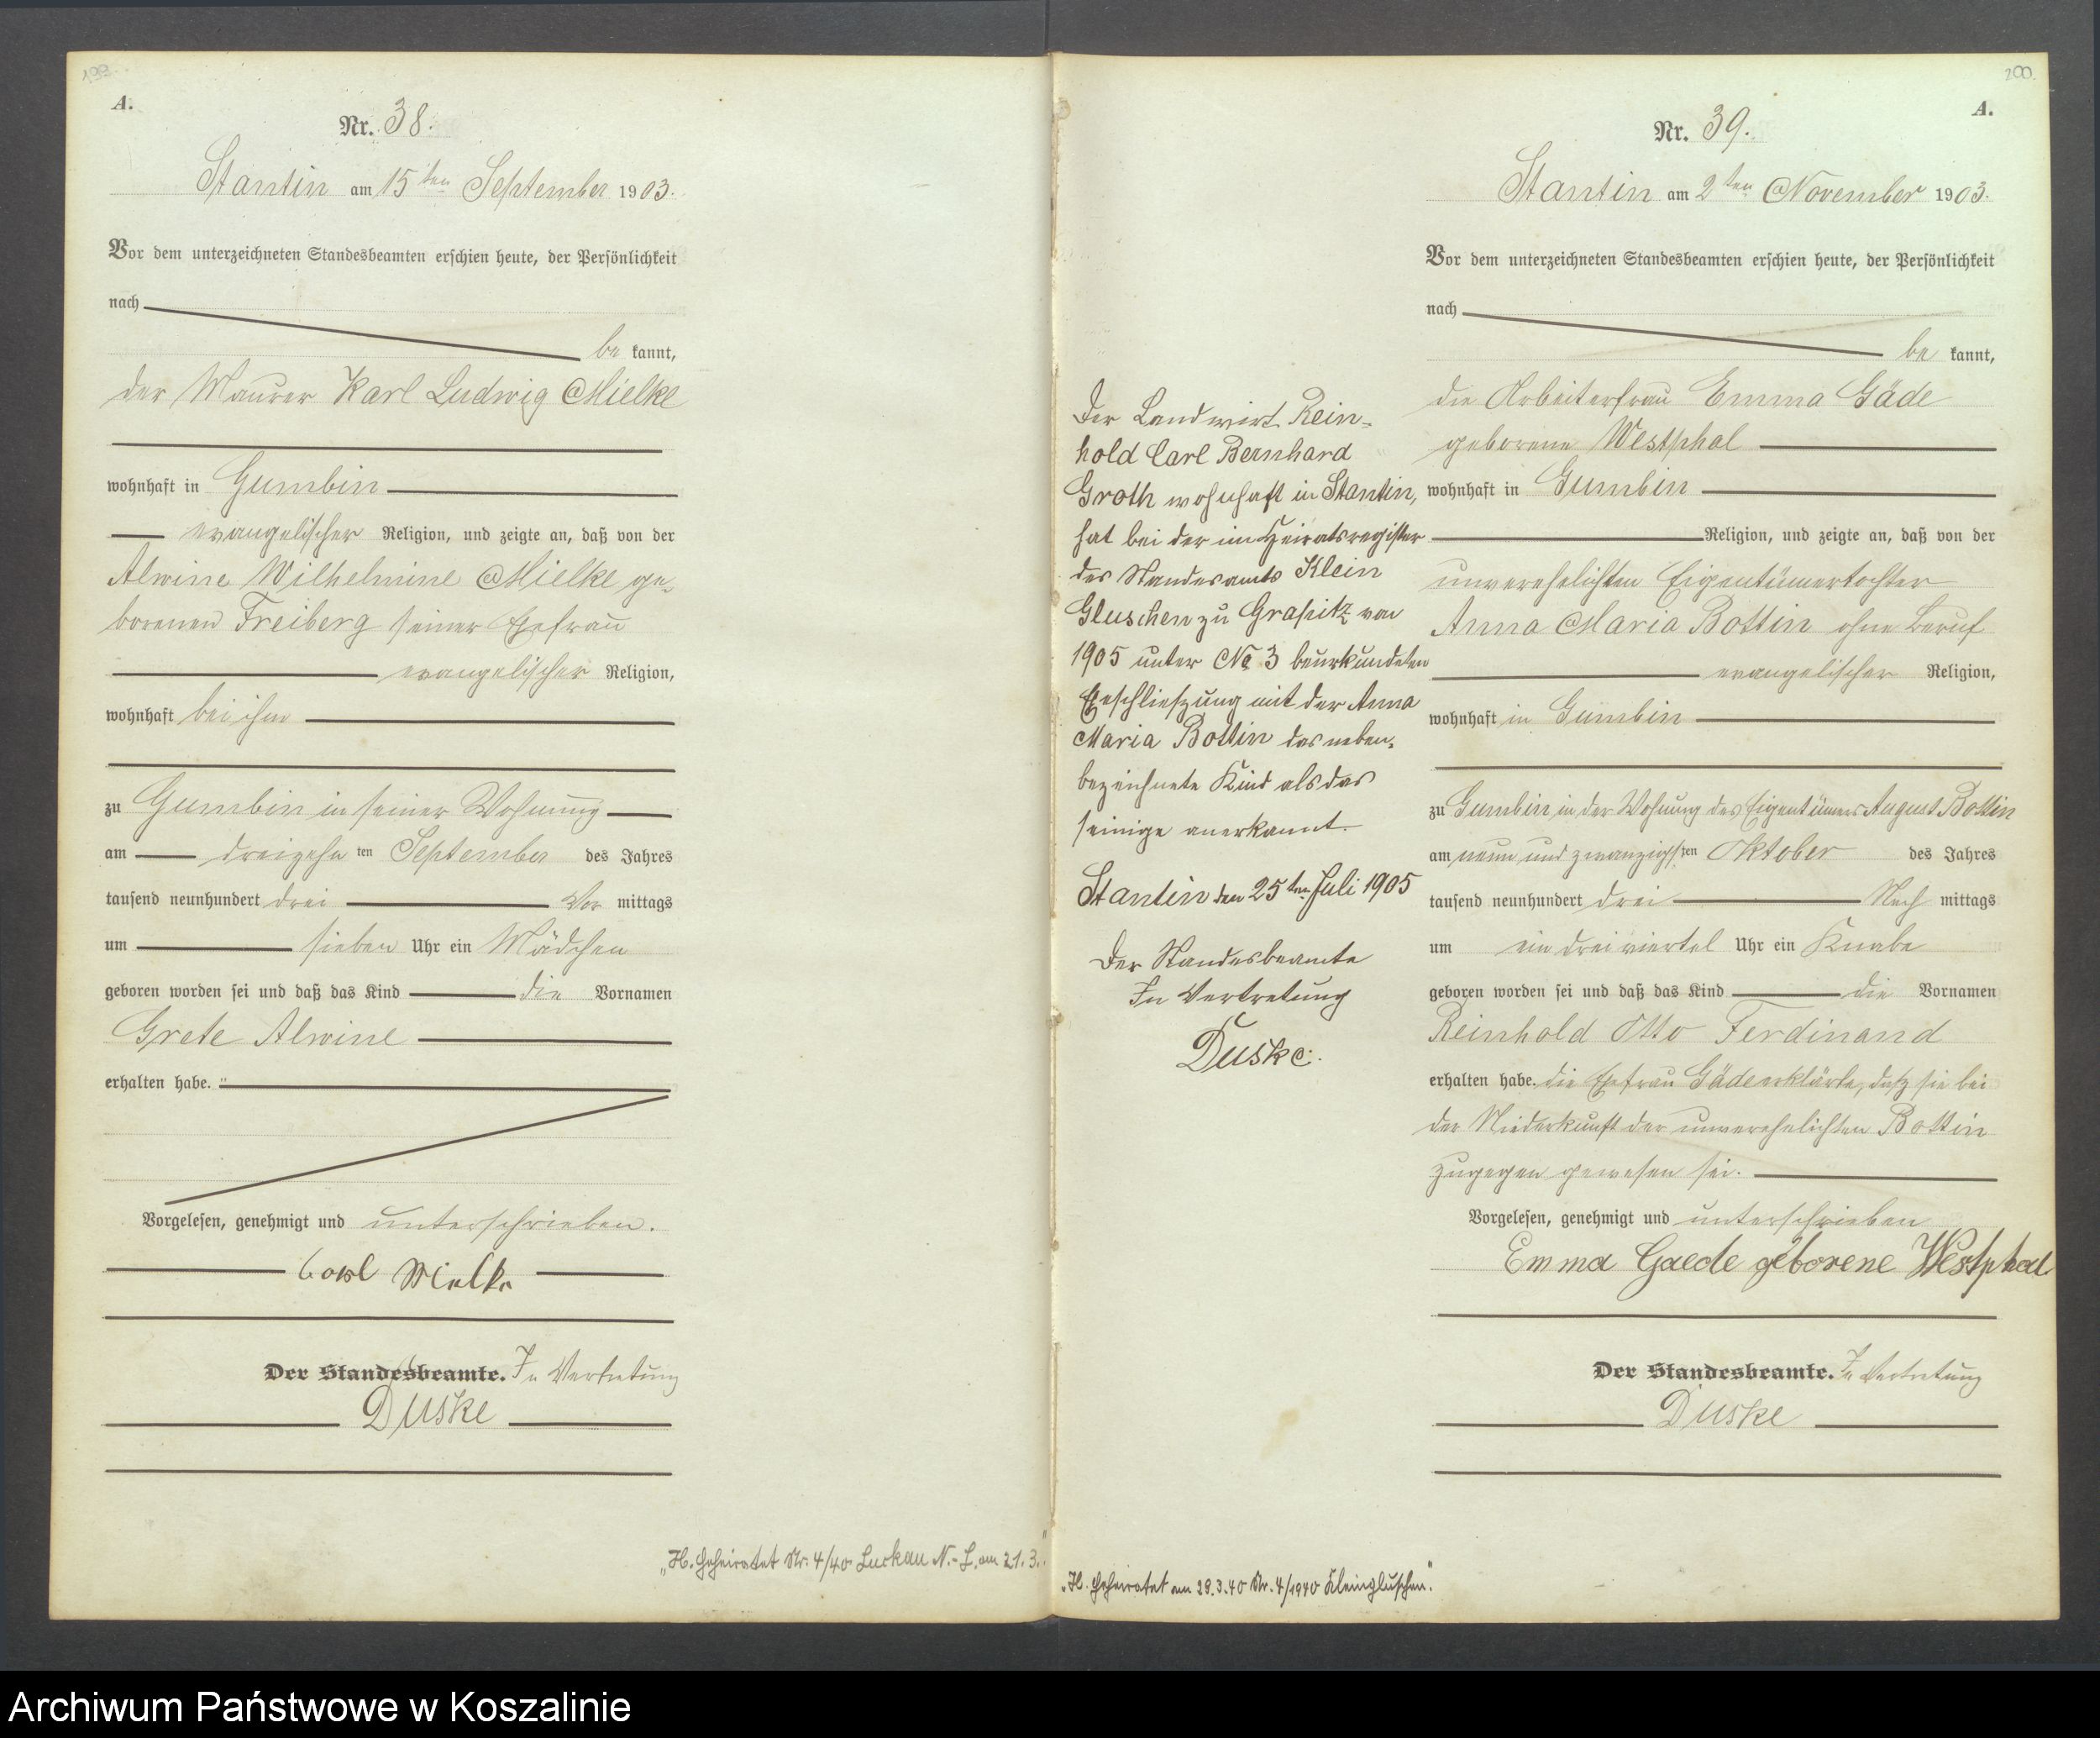 199.
A.
Nr. 38.
Stantin am 15ten September 1903.
Vor dem unterzeichneten Standesbeamten erschien heute, der Persönlichkeit
nach
be kannt,
der Maurer Karl Ludwig Mielke
wohnhaft in Gumbin
evangelischer Religion, und zeigte an, daß von der
Alwine Wilhelmine Mielke ge-
borenen Freiberg seiner Ehefrau
evangelischer Religion,
wohnhaft bei ihm
zu Gumbin in seiner Wohnung
am dreizehnten September des Jahres
tausend neunhundert drei Vor mittags
um sieben Uhr ein Mädchen
geboren worden sei und daß das Kind die Vornamen
Grete Alwine
erhalten habe.
Vorgelesen, genehmigt und unterschrieben.
Carl Mielke
Der Standesbeamte. In Vertretung
Duske
„H. Geheiratet Nr. 4/40 Luckau N.-L. am 21.3."
200.
A.
Nr. 39.
Stantin am 2ten November 1903.
Vor dem unterzeichneten Standesbeamten erschien heute, der Persönlichkeit
nach
be kannt,
die Arbeiterfrau Emma Gäde
geborene Westphal
wohnhaft in Gumbin
Religion, und zeigte an, daß von der
unverehelichten Eigentümertochter
Anna Maria Bottin ohne Beruf
evangelischer Religion,
wohnhaft in Gumbin
zu Gumbin in der Wohnung des Eigentümers August Bottin
am neun und zwanzigsten Oktober des Jahres
tausend neunhundert drei Nach mittags
um ein dreiviertel Uhr ein Knabe
geboren worden sei und daß das Kind die Vornamen
Reinhold Otto Ferdinand
erhalten habe. die Ehefrau Gäde erklärte, daß sie bei
der Niederkunft der unverehelichten Bottin
zugegen gewesen sei.
Vorgelesen, genehmigt und unterschrieben
Emma Gaede geborene Westphal
Der Standesbeamte. In Vertretung
Duske
Der Landwirt Rein-
hold Carl Bernhard
Groth wohnhaft in Stantin,
hat bei der im Heiratsregister
des Standesamts Klein
Gluschen zu Grapitz von
1905 unter No 3 beurkundeten
Eheschließung mit der Anna
Maria Bottin das neben-
bezeichnete Kind als das
seinige anerkannt.
Stantin den 25ten Juli 1905
Der Standesbeamte
In Vertretung
Duske.
„H. Geheiratet am 29.3.40 Nr. 4/1940 Kleingluschen."
Archiwum Państwowe w Koszalinie